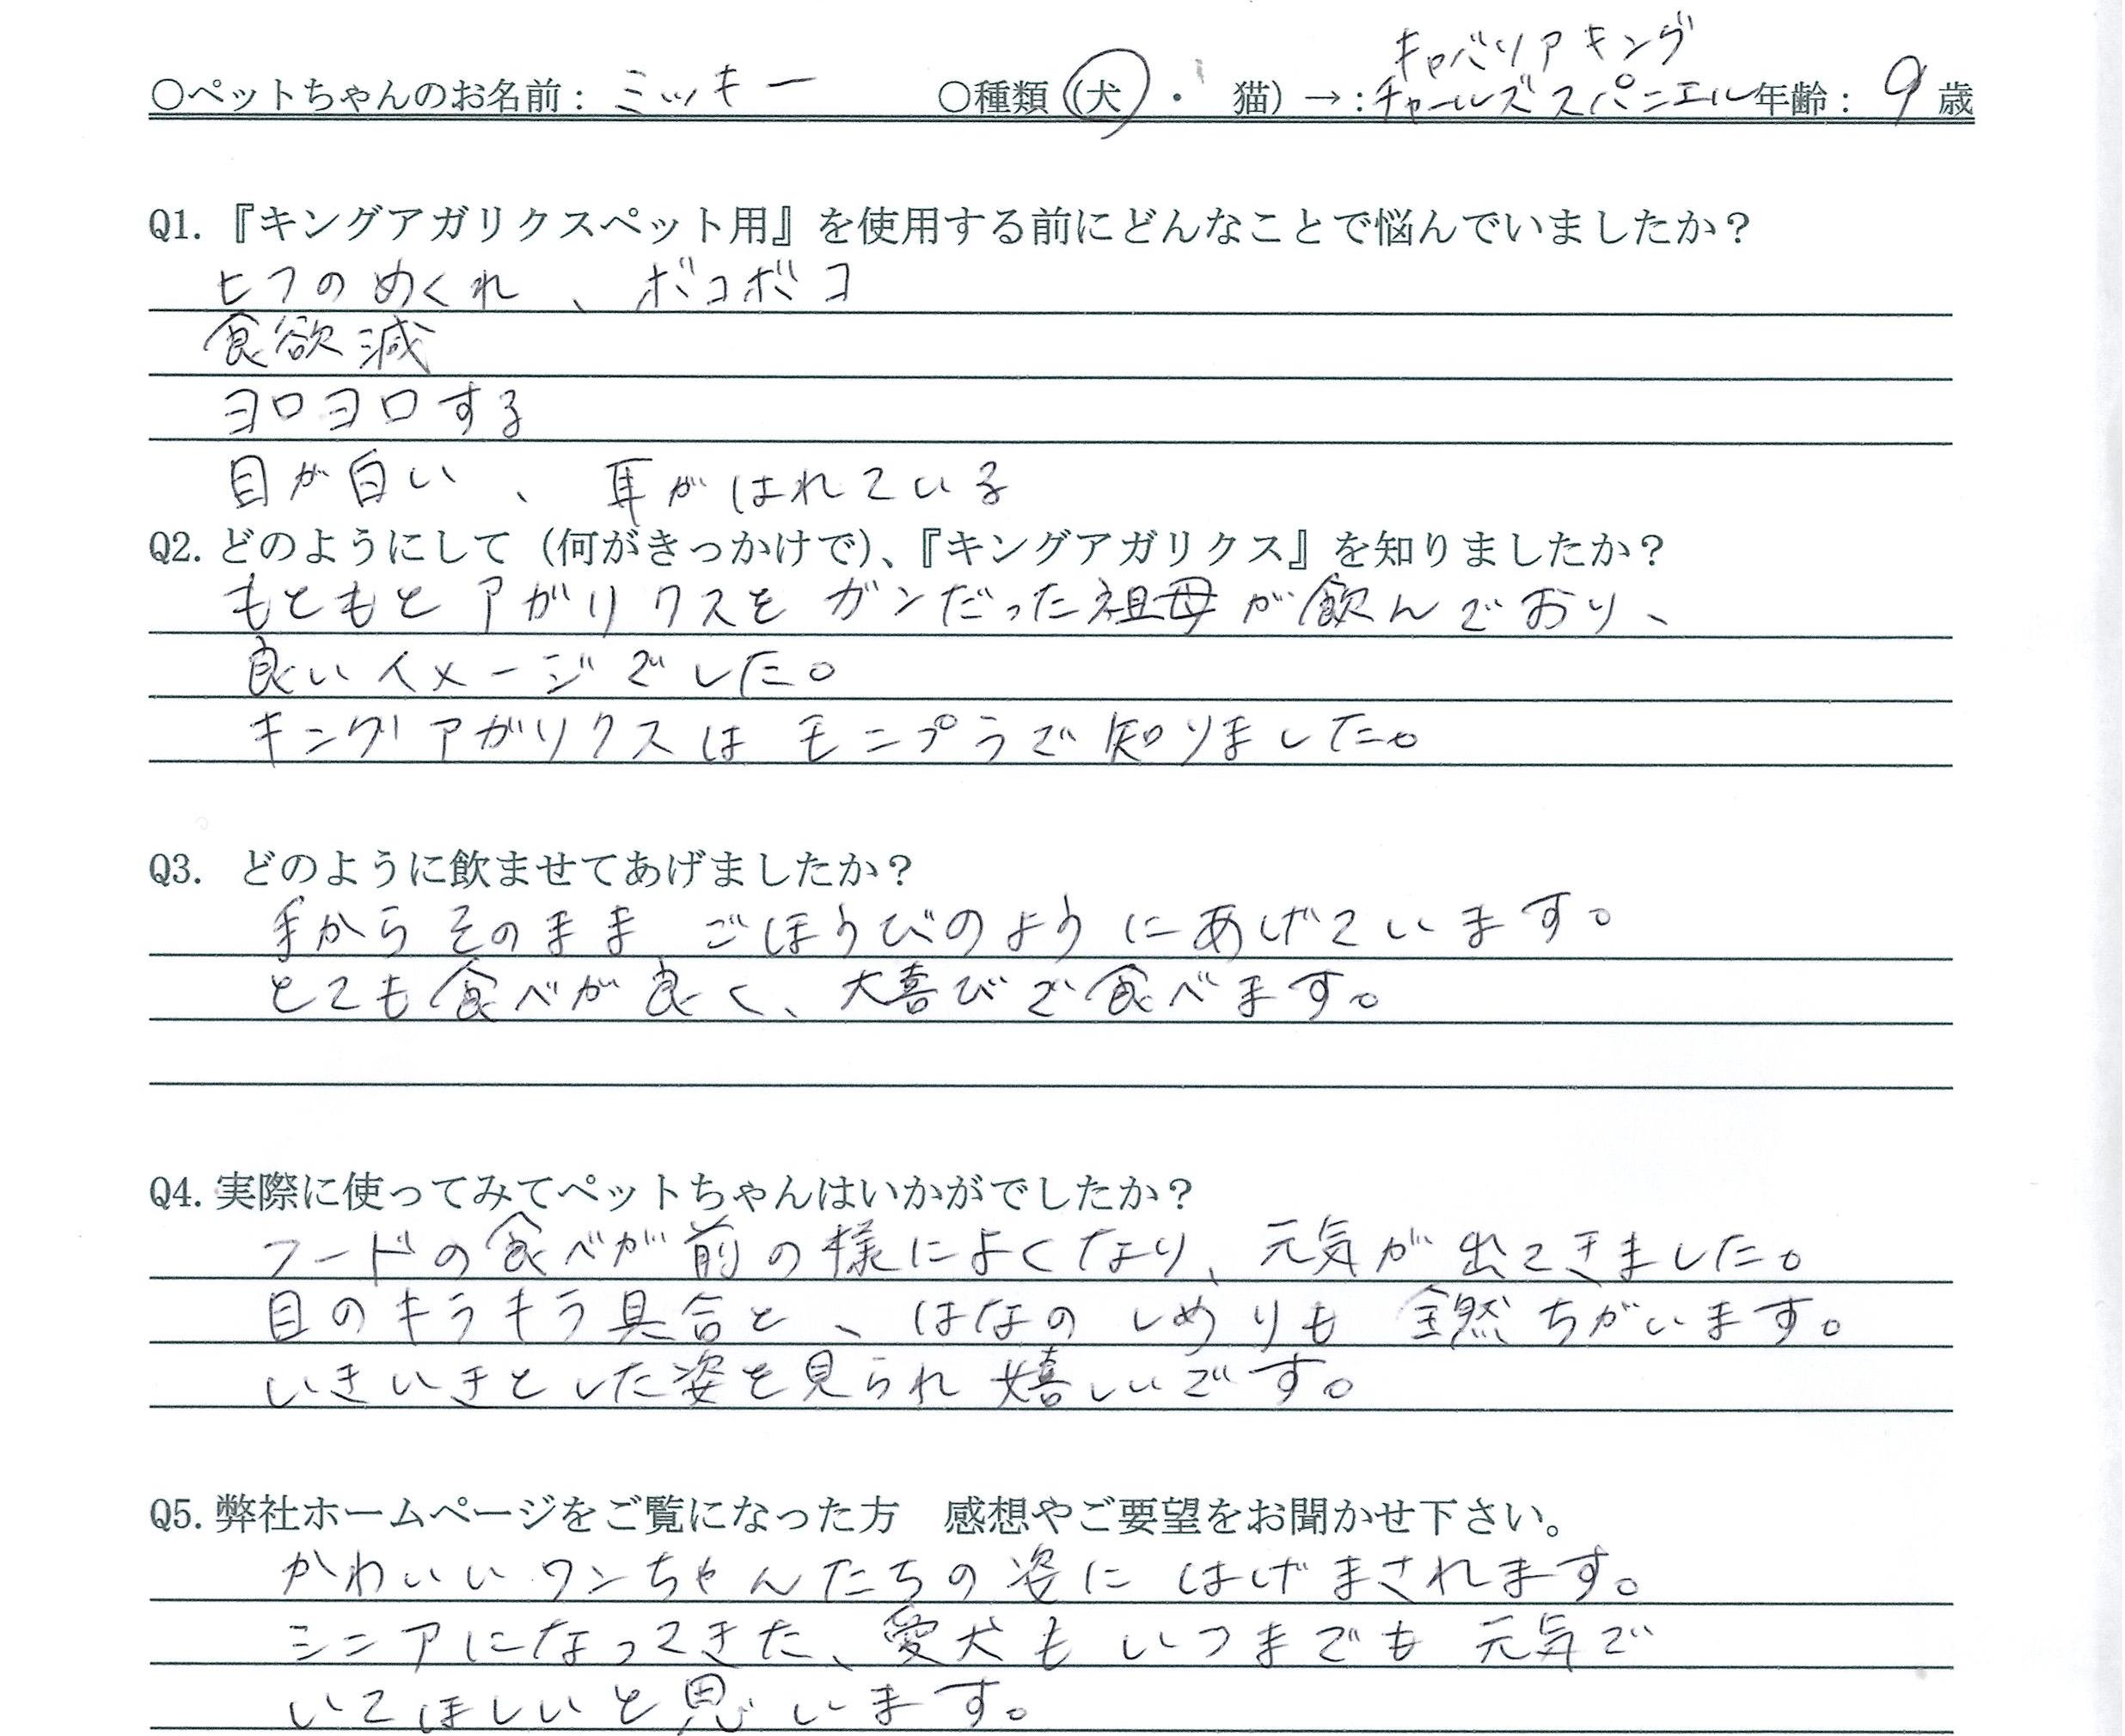 キャバリアキング
○ペットちゃんのお名前：ミッキー ○種類（犬・猫）→：チャールズスパニエル年齢：9歳
Q1.『キングアガリクスペット用』を使用する前にどんなことで悩んでいましたか？
ヒフのめくれ、ボコボコ
食欲減
ヨロヨロする
目が白い、耳がはれている
Q2.どのようにして（何がきっかけで）、『キングアガリクス』を知りましたか？
もともとアガリクスをガンだった祖母が飲んでおり、
良いイメージでした。
キングアガリクスはモニプラで知りました。
Q3. どのように飲ませてあげましたか？
手からそのままごほうびのようにあげています。
とても食べが良く、大喜びで食べます。
Q4.実際に使ってみてペットちゃんはいかがでしたか？
フードの食べが前の様によくなり、元気が出てきました。
目のキラキラ具合と、はなのしめりも全然ちがいます。
いきいきとした姿を見られ嬉しいです。
Q5.弊社ホームページをご覧になった方　感想やご要望をお聞かせ下さい。
かわいいワンちゃんたちの姿にはげまされます。
シニアになってきた、愛犬もいつまでも元気で
いてほしいと思います。